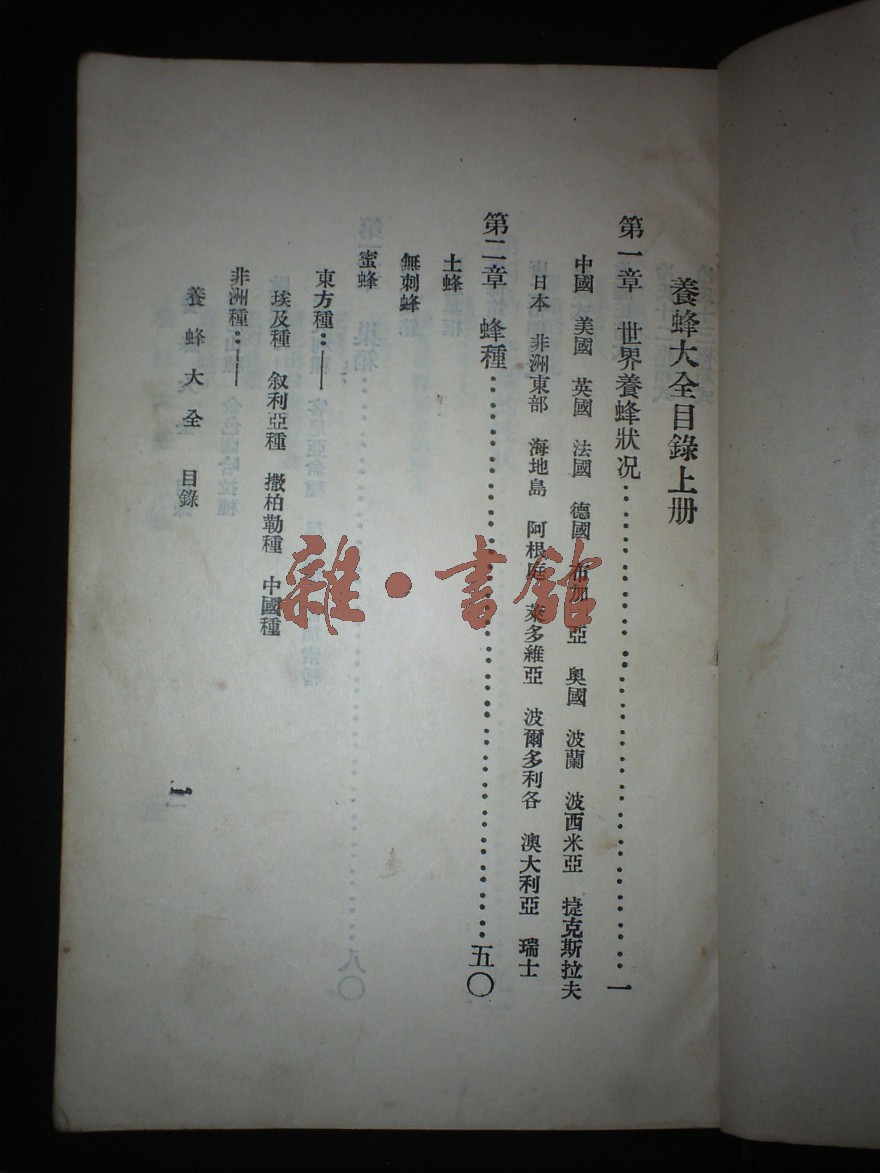 養蜂大全目錄上册
第一章 世界養蜂狀況……………………………一
中國 美國 英國 法國 德國 布加 亞 奧國 波蘭 波西米亞 捷克斯拉夫
日本 非洲東部 海地島 阿根庭 萊多維亞 波爾多利各 澳大利亞 瑞士
第二章 蜂種……………………………五〇
土蜂
無刺蜂
蜜蜂
東方種：——
埃及種 敘利亞種 撒柏勒種 中國種
非洲種：——
養蜂大全 目錄
一
雜·書館